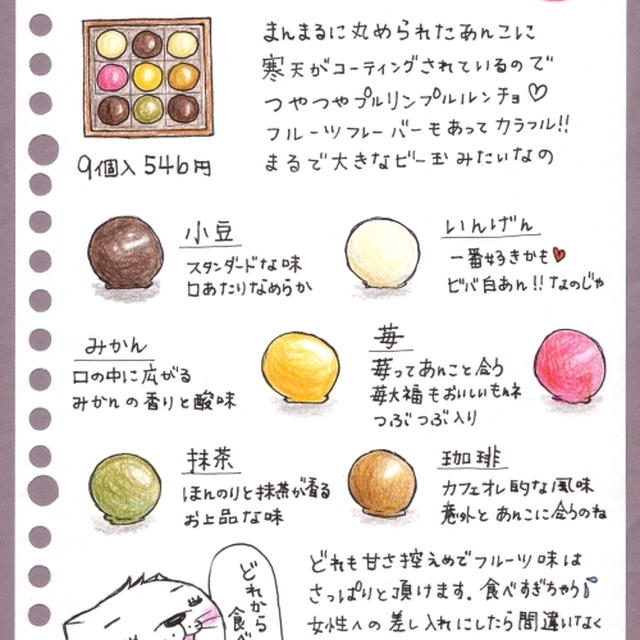 まんまるに丸められたあんこに
寒天がコーティングされているので
つやつやプルリンプルルンチョ♡
フルーツフレーバーもあってカラフル!!
まるで大きなビー玉みたいなの
9個入546円
小豆
スタンダードな味
口あたりなめらか
いんげん
一番好きかも♥
ビバ白あん!!なのじゃ
みかん
口の中に広がる
みかんの香りと酸味
苺
苺ってあんこと合う
苺大福もおいしいもんネ
つぶつぶ入り
抹茶
ほんのりと抹茶が香る
お上品な味
珈琲
カフェオレ的な風味
意外とあんこに合うのね
どれから
食べ
どれも甘さ控えめでフルーツ味は
さっぱりと頂けます。食べすぎちゃう
女性への差し入れにしたら間違いなく